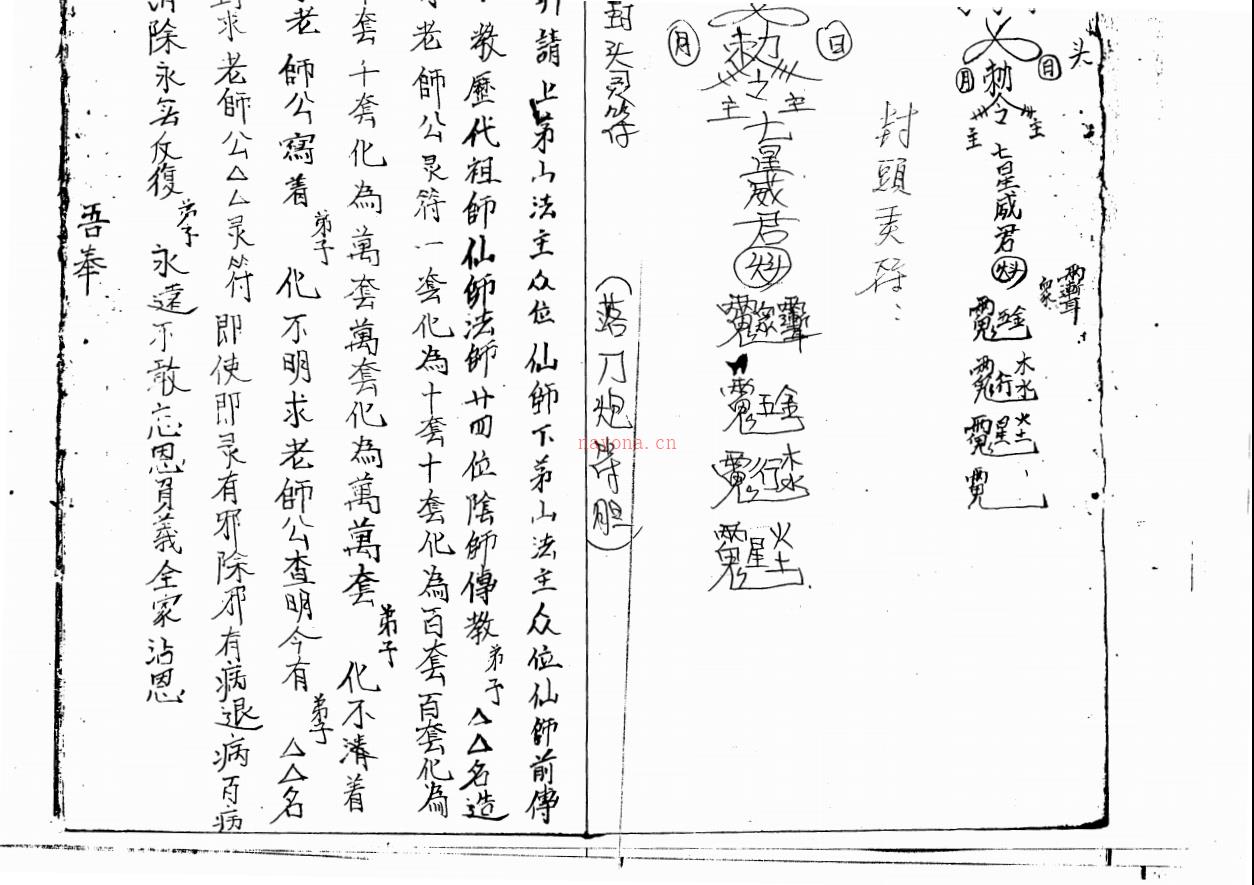 头
日
月
勅令
主
主
七星威君
金
五
木水
行
火土
星
封頭灵符
日
月
勅令
主
主
七星威君
金
五
木水
行
火土
星
封头灵符
(落刀炮带胆)
請上茅山法主众位仙師下茅山法主众位仙師前傳
教歷代祖師仙師法師廿四位陰師傳教弟子△△名造
老師公灵符一套化为十套十套化為百套百套化為
套千套化為萬套萬套化為萬萬套弟子化不清着
老師公寫着弟子化不明求老師公查明今有弟子△△名
求老師公△△灵符即使即灵有邪除邪有病退病百病
消除永無反復弟子永遠不敢忘恩負義全家沾恩
吾奉
nayona.cn